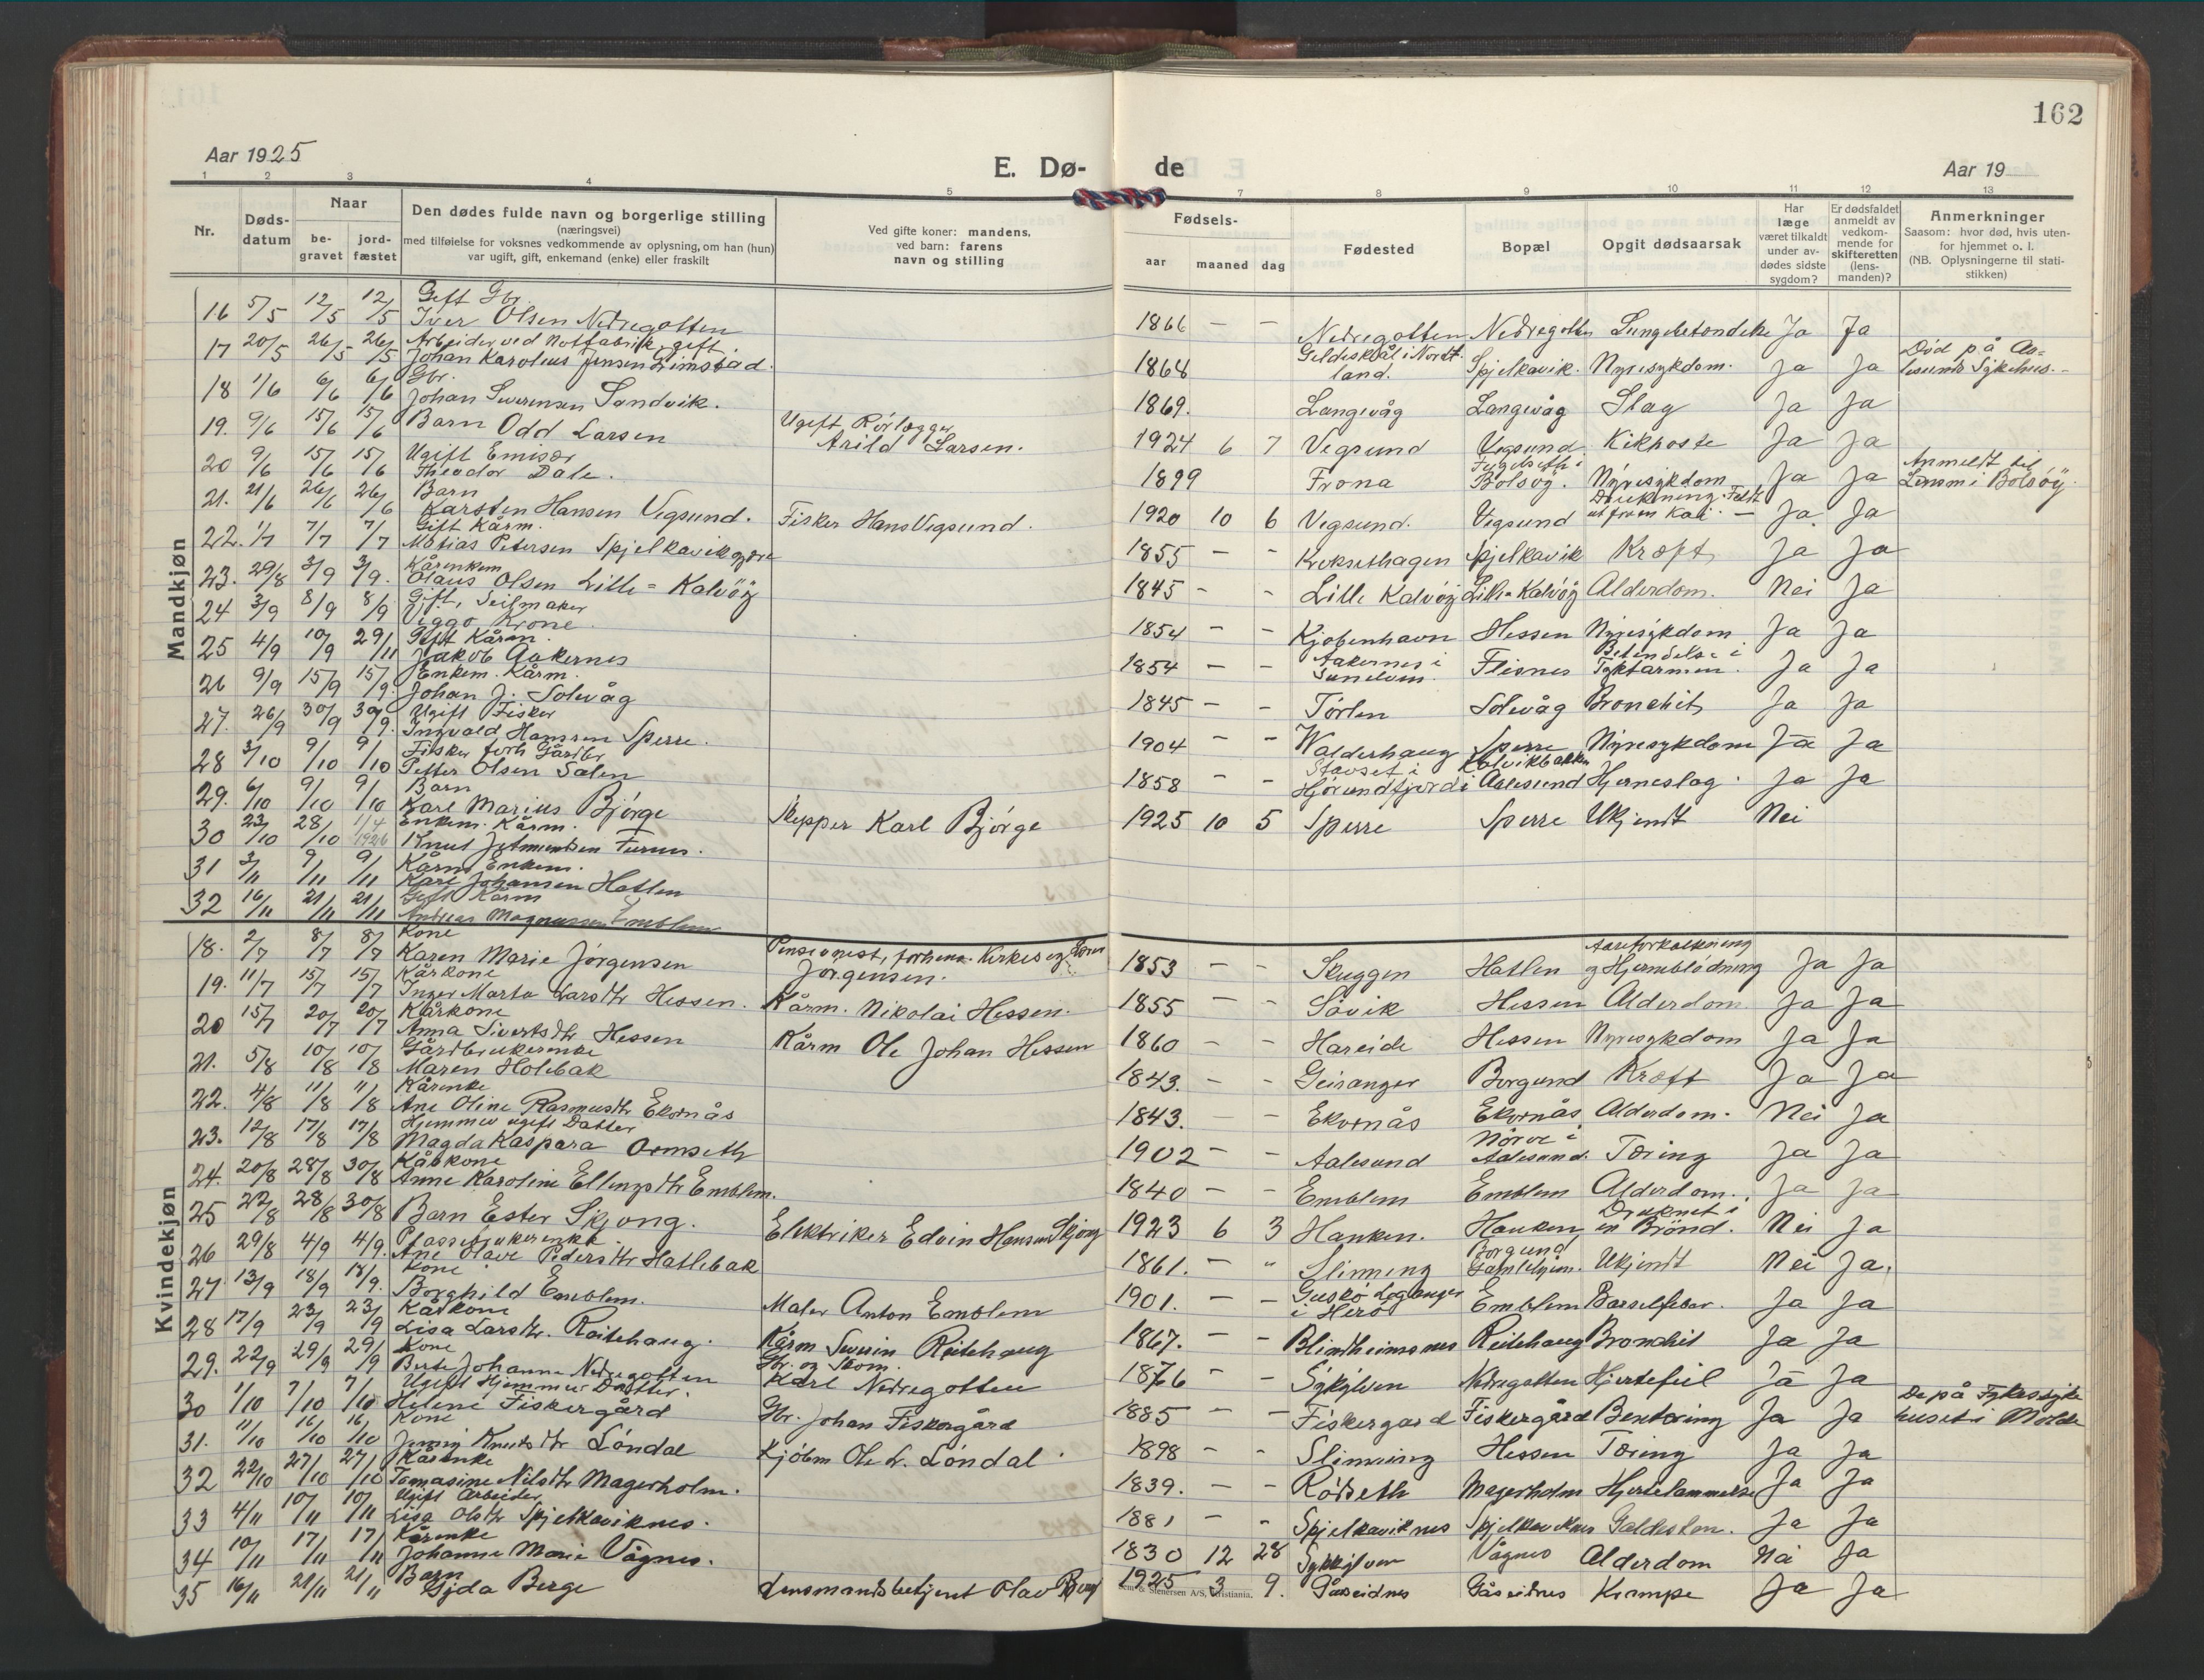 162
Aar 1925
E. Dø- de
Aar 19
1 2 3 4 5 7 8 9 10 11 12 13
Nr.
Døds-
datum
Naar
be-
gravet
jord-
fæstet
Den dødes fulde navn og borgerlige stilling
(næringsvei)
med tilføielse for voksnes vedkommende av oplysning, om han (hun)
var ugift, gift, enkemand (enke) eller fraskilt
Ved gifte koner: mandens,
ved barn: farens
navn og stilling
Fødsels-
aar maaned dag
Fødested
Bopæl
Opgit dødsaarsak
Har
læge
været tilkaldt
under av-
dødes sidste
sygdom?
Er dødsfaldet
anmeldt av
vedkom-
mende for
skifteretten
(lens-
manden)?
Anmerkninger
Saasom: hvor død, hvis uten-
for hjemmet o. l.
(NB. Oplysningerne til stati-
stikken)
Mandkjøn
Gift Gbr.
16 5/5 12/5 12/5 Iver Olsen Nedregotten 1866 – – Nedregotten Nedregotten Lungebetendelse Ja Ja
Arbeider ved Notfabrik, gift.
17 20/5 26/5 26/5 Johan Karolius Jensen Limstad. 1868 Gildeskål i Nordland. Spjelkavik. Nyresykdom. Ja Ja Død på Aalesunds Sykehus.
Gbr.
18 1/6 6/6 6/6 Johan Severensen Sandvik. 1869. Langevåg Langevåg Slag Ja Ja
19. 9/6 15/6 15/6 Barn Odd Larsen Ugift Rörlegger Arild Larsen. 1924 6 7 Vegsund Vegsund Kikhoste Ja Ja
Ugift Emisær
20 9/6 15/6 15/6 Theodor Dale. 1899 Frona Bolsöy. Nyresykdom Ja Ja Anmeldt til Lensm i Bolsöy.
Barn
21. 21/6 26/6 26/6 Karsten Hansen Vegsund. Fisker Hans Vegsund. 1920 10 6 Vegsund. Vegsund Drukning. Falt ut fra en Kai. Ja Ja
Gift Kårm.
22. 1/7 7/7 7/7 Matias Petersen Spjelkavikøgjære 1855 – – Spjelkavik Kræft Ja Ja
Kårenkem
23. 29/8 3/9 3/9. Olaus Olsen Lille-Kalvöy 1845 – – Lille Kalvöy Lille-Kalvöy Alderdom. Nei Ja
Gift, Seilmaker
24 3/9 8/9 8/9 Viggo Krone. 1854 – – Kjøbenhavn Hessen Nyresykdom Ja Ja
Gift Kårm.
25 4/9 10/9 29/11 Jakob Aakernes 1854 – – Aakernes i Sunelven. Flisnes Betendelse i Tyktarmen. Ja Ja
Enkem. Kårm.
26 9/9 15/9 15/9. Johan J. Solevåg 1845 – – Tørlen Solevåg Bronchit Ja Ja
Ugift Fisker
27. 26/9 30/9 30/9. Ingvald Hansen Sperre. 1904 – – Walderhaug Sperre Nyresykdom Ja Ja
Fisker forh Gårdbr
28 3/10 9/10 9/10 Petter Olsen Salen 1858 – – Stavset i Hjörundfjord Kalvikbakken i Aalesund Hjerneslag. Ja Ja
Barn
29. 6/10 9/10 9/10 Karl Marius Bjørge Skipper Karl Bjørge 1925 10 5 Sperre Sperre Ukjendt Nei
Enkem. Kårm.
30 23/10 28/10 1/4 1926 Knut Furnes.
Kårm Enkem.
31 3/11 9/11 9/11 Karl Johansen Hatlen
Gift Kårm
32 16/11 21/11 21/11 Andreas Magnussen Emblem
Kvindekjøn
Kone
18. 2/7 8/7 8/7 Karen Marie Jørgensen Pensionist, forhenv. Kirkesanger Jörgensen. 1853 – – Skuggen Hatlen Aareforkalkning og Hjerneblödning Ja Ja
Kårkone
19. 11/7 15/7 15/7 Inger Marta Larsdtr Hessen. Kårm. Nikolai Hessen. 1855 – – Søvik Hessen Alderdom Ja Ja
Kårkone
20 15/7 20/7 20/7 Anna Sivertsdtr Hessen Kårm Ole Johan Hessen 1860 – – Hareide Hessen Nyresykdom Ja Ja
Gårdbrukerenke
21. 5/8 10/8 10/8 Maren Holebak 1843. – – Geiranger Borgund Kræft Ja Ja
Kårenke
22. 4/8 11/8 11/8 Ane Oline Rasmusdtr Ekornås 1843. – – Ekornås Ekornås Alderdom. Nei Ja
Hjemmev ugift Datter
23. 12/8 17/8 17/8 Magda Kaspara Ormseth 1902 – – Aalesund Nörve i Aalesund. Tæring Ja Ja
Kårkone
24. 20/8 28/8 30/8 Anne Karoline Ellingsdtr Emblem. 1840 – – Emblem Emblem Alderdom. Ja Ja
25 22/8 28/8 30/8 Barn Ester Skjong. Elektriker Edvin Hansen Skjong 1923 6 3 Hanken. Hanken, Druknet i en Brönd. Nei Ja
Plassebrukerenke
26 29/8 4/9 4/9. Ane Olave Pedersdtr Hatlebak 1861. – „ Slinning Borgund Gamlehjem. Ukjendt Nei Ja.
Kone
27 13/9 18/9 18/9. Borghild Emblem. Maler Anton Emblem 1901. – – Guskö Leganger i Herö Emblem Barselfeber. Ja Ja
Kårkone
28 17/9 23/9 23/9 Lisa Larsdtr. Reitehaug. Kårm Severin Reitehaug 1867. – – Blindheimsnes Reitehaug Bronchit Ja Ja
Kone
29. 22/9 29/9 29/9 Berte Johanne Nedregotten Gbr. og Skom. Karl Nedregotten 1876 – – Sykylven Nedregotten Hjertefeil Ja Ja
Ugift Hjemmev Datter.
30 1/10 7/10 7/10 Helene Fiskergård Gbr. Johan Fiskergård 1885 – – Fiskergård Fiskergård Bentæring Ja Ja Död på Sykehuset i Molde
Kone
31. 11/10 16/10 16/10 Jenny Knutsdtr Löndal Kjöbm Ole L. Löndal 1898 – – Slinning Hessen Tæring Ja Ja
Kårenke
32 22/10 27/10 27/10 Tomasine Nilsdtr Magerholm. 1839. – – Rödseth Magerholm Hjertelammelse Ja Ja
Ugift Arbeider
33 4/11 10/11 10/11 Lisa Olsdtr Spjelkaviknes. 1881 – – Spjelkaviknes Spjelkaviknes Galdesten. Ja Ja
Kårenke
34 10/11 17/11 17/11 Johanne Marie Vågnes. 1830 12 28 Sykkylven Vågnes Alderdom Nei Ja
Barn
35 16/11 21/11 21/11 Gyda Berge Lensmandsbetjent Olav Berg 1925 3 9. Gåseidnes Gåseidnes Krampe Ja Ja